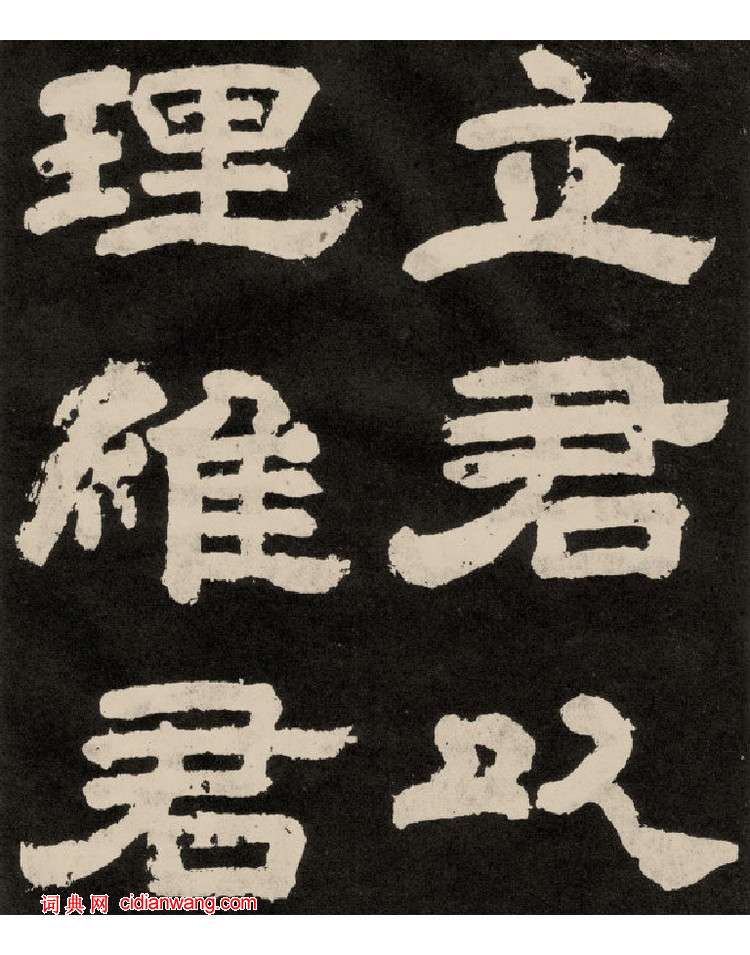 立君以
理維君
词典网 cidianwang.com